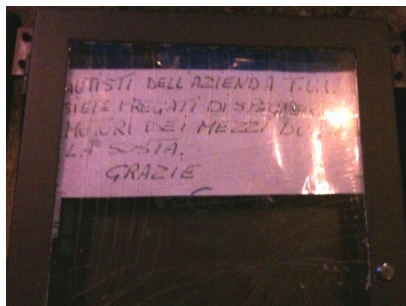 AUTISTI DELL'AZIENDA
SIETE PREGATI DI
MOTORI DEI MEZZI
LA SOSTA.
GRAZIE